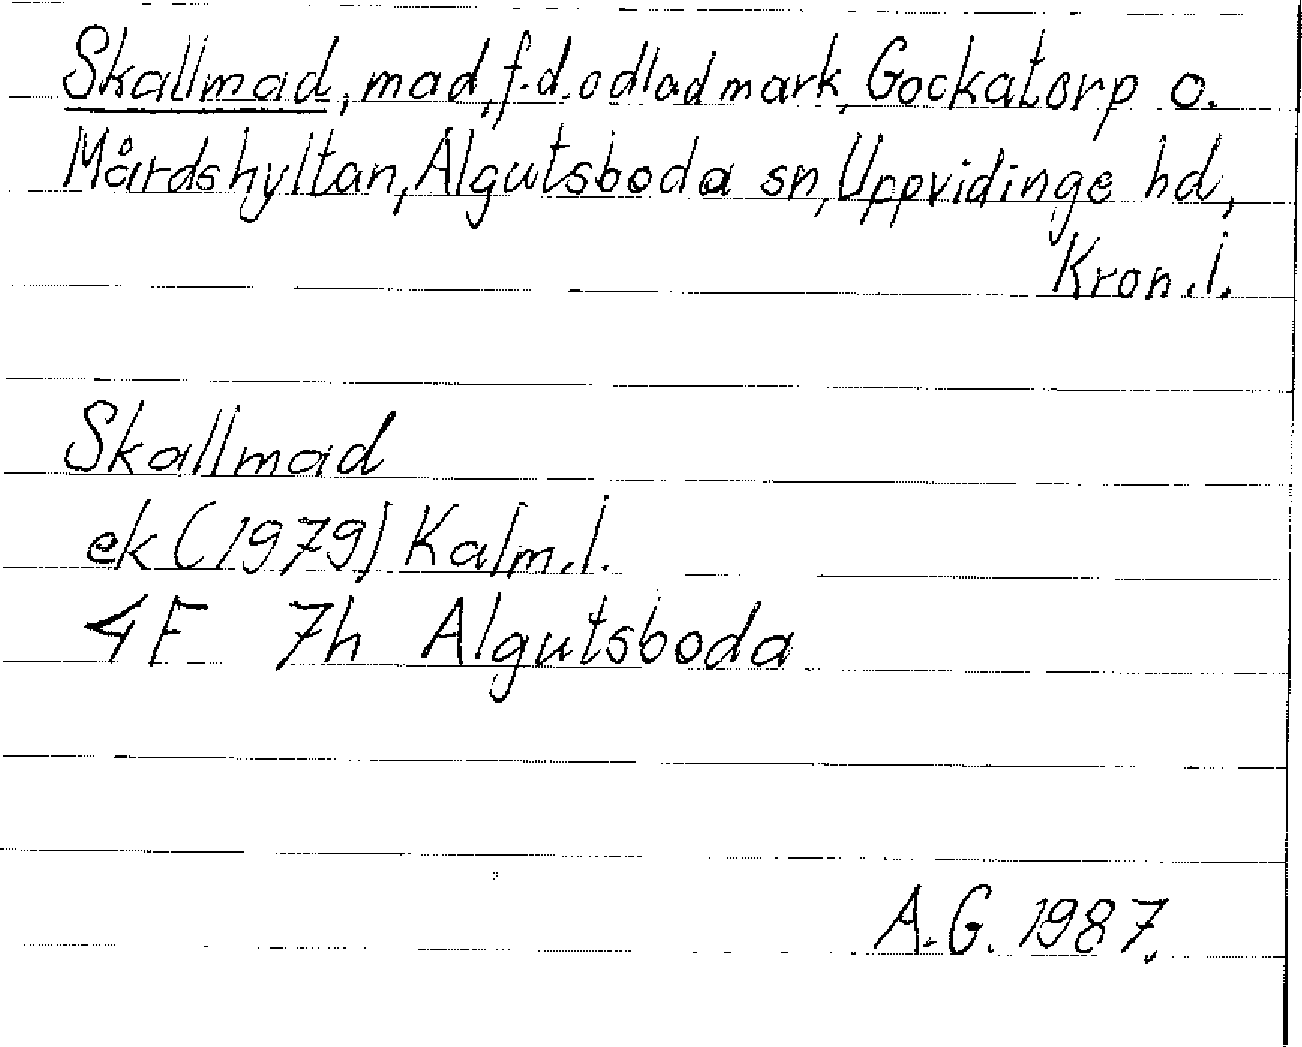 Skallmad, mad, f.d. odlad mark, Gockatorp o.
Mårdshyltan, Algutsboda sn, Uppvidinge hd,
Kron. l.
Skallmad
ek (1979) Kalm. l.
4F 7h Algutsboda
A.G. 1987.